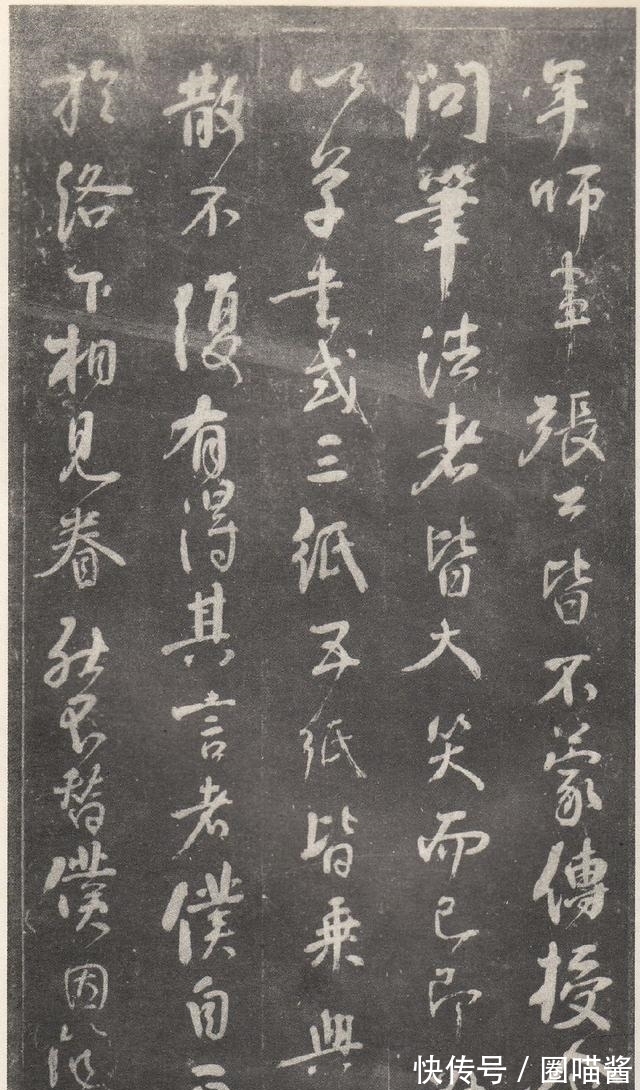 年師事張公皆不蒙傳授
問筆法者皆大笑而已即
以草書或三紙五紙皆乘興
散不復有得其言者僕自再
於洛下相見眷然不替僕因從
快传号 / 圈喵酱